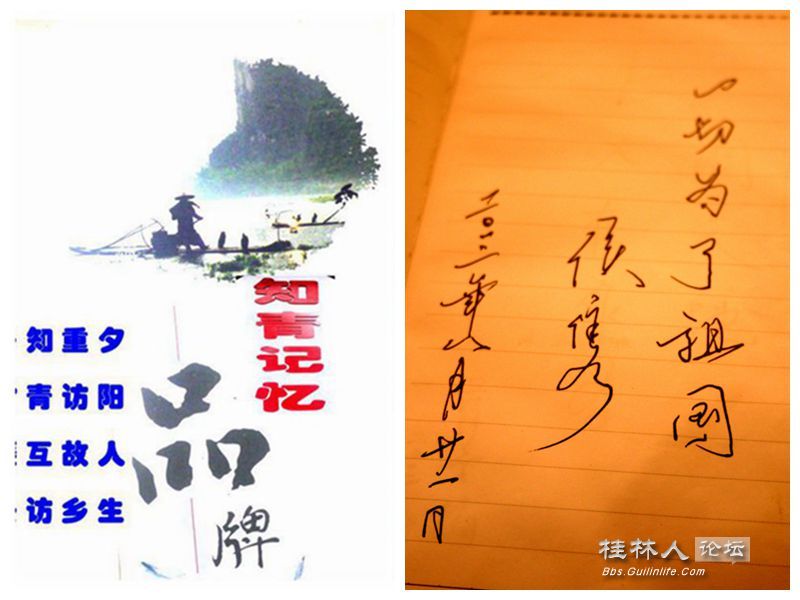 知青记忆
品牌
夕阳人生
重访故乡
知青互访
一切为了祖国
二〇一二年八月廿一日
桂林人论坛
Bbs.Guilinlife.Com